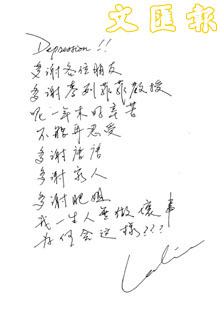 文匯報
Depression!!
多謝各位朋友
多謝李列菲菲教授
呢一年來好辛苦
不能再忍受
多謝唐唐
多謝家人
多謝肥姐
我一生人無做壞事
為何會這樣???
Leslie